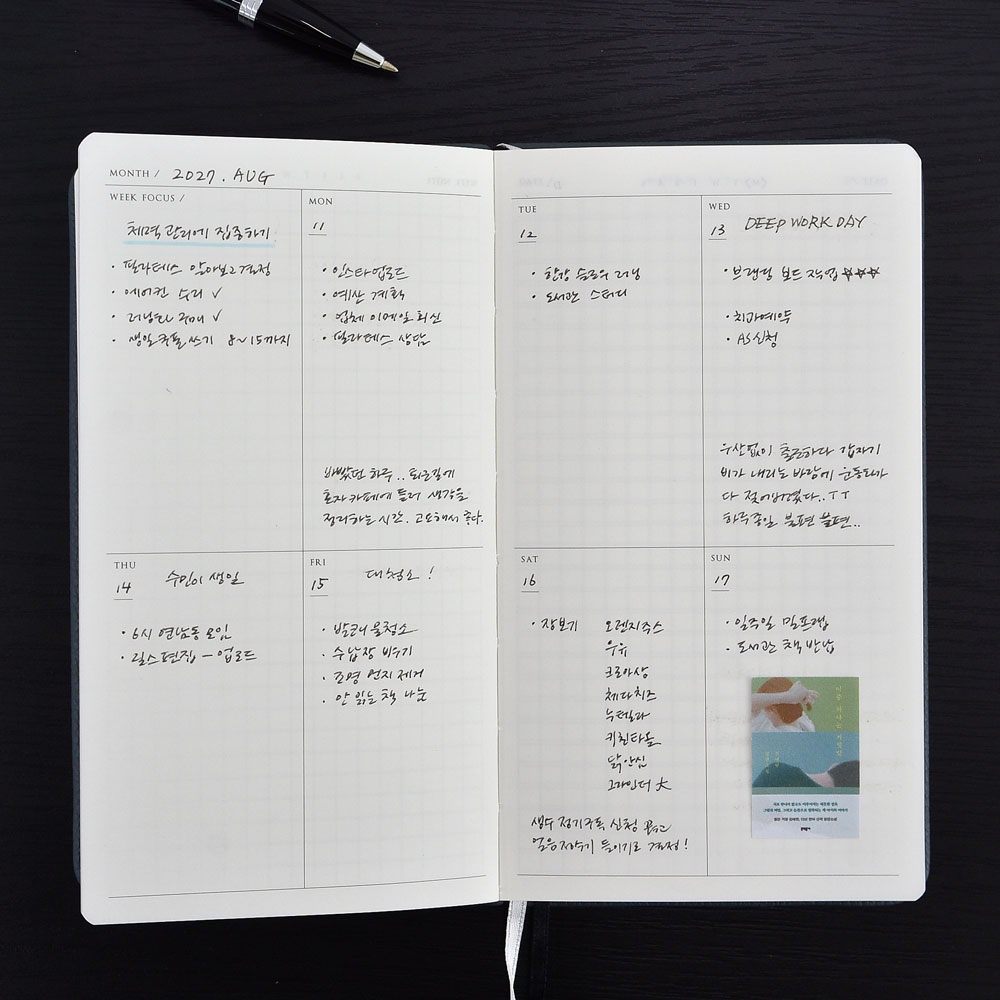 MONTH / 2027. AUG
WEEK FOCUS /
체력 관리에 집중하기
· 필라테스 알아보고 결정
· 에어컨 수리 ✓
· 러닝화 구매 ✓
· 생일쿠폰 쓰기 8~15까지
MON
11
· 인스타 업로드
· 예산 계획
· 업체 이메일 회신
· 필라테스 상담
바빴던 하루.. 퇴근길에
혼자 카페에 들러 생각을
정리하는 시간. 고요해서 좋다.
TUE
12
· 한강 슬로우 러닝
· 도서관 스터디
WED
13 DEEP WORK DAY
· 브랜딩 보드 작업 ☆☆☆
· 치과예약
· AS신청
우산없이 출근하다 갑자기
비가 내리는 바람에 운동화가
다 젖어버렸다..ㅜㅜ
하루종일 불편 불편..
THU
14 수민이 생일
· 6시 연남동 모임
· 릴스편집 – 업로드
FRI
15 대청소!
· 발코니 물청소
· 수납장 비우기
· 조명 먼지 제거
· 안 읽는 책 나눔
SAT
16
· 장보기 오렌지주스
우유
크로와상
체다치즈
누텔라
키친타올
닭안심
그라인더 大
생수 정기구독 신청
얼음정수기 들이기로 결정!
SUN
17
· 일주일 밀프랩
· 도서관 책 반납